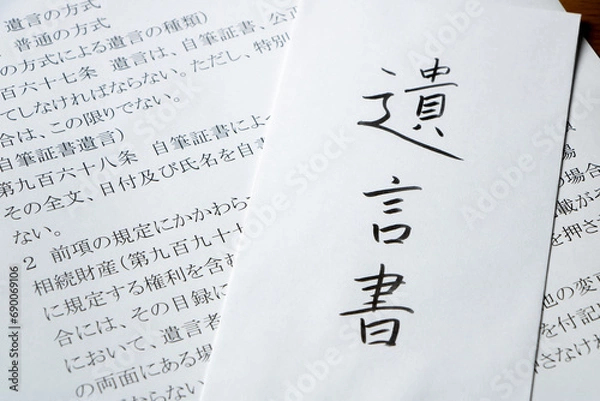 遺言の方式
普通の方式
の方式による遺言の種類)
百六十七条 遺言は、自筆証書、公正
てしなければならない。ただし、特別
合は、この限りでない。
自筆証書遺言)
第九百六十八条 自筆証書によ
その全文、日付及び氏名を自書
ない。
2 前項の規定にかかわら
相続財産(第九百九十七
に規定する権利を含む
合には、その目録に
において、遺言者
の両面にある場
ばならない
遺言書
場
の場合
載がそ
を押さ
地の変更
を付記し
さなけれ
Adobe Stock | #690069106